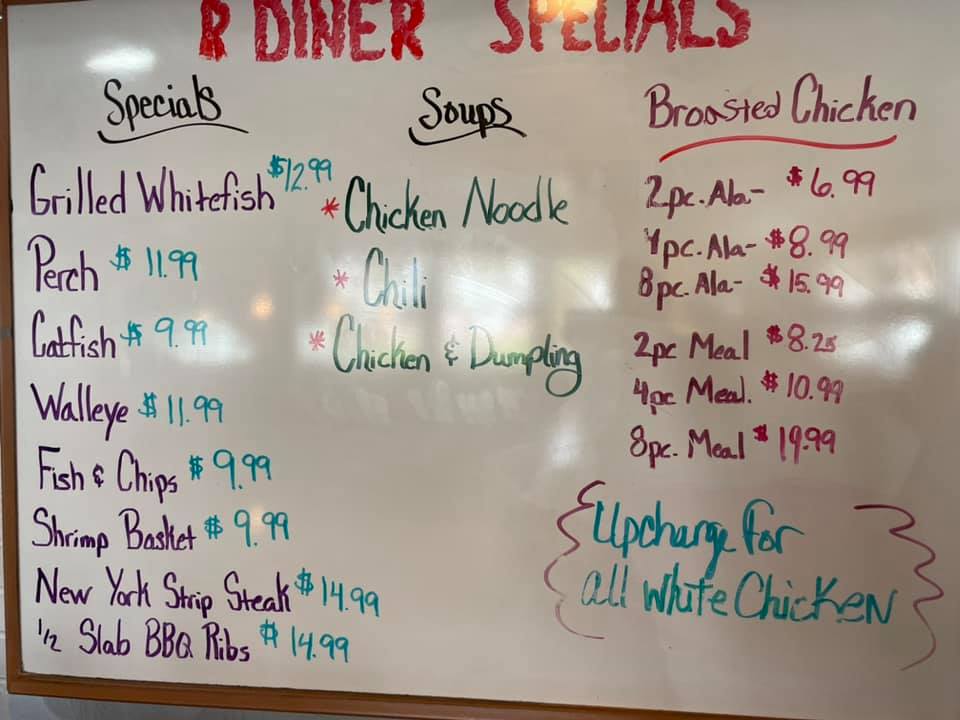 R DINER SPECIALS
Specials
Grilled Whitefish $12.99
Perch $ 11.99
Catfish $ 9.99
Walleye $ 11.99
Fish & Chips $ 9.99
Shrimp Basket $ 9.99
New York Strip Steak $ 14.99
1/2 Slab BBQ Ribs $ 14.99
Soups
* Chicken Noodle
* Chili
* Chicken & Dumpling
Broasted Chicken
2pc. Ala- $6.99
4pc. Ala- $8.99
8pc. Ala- $15.99
2pc Meal $8.25
4pc Meal. $10.99
8pc. Meal $19.99
Upcharge for
all white Chicken